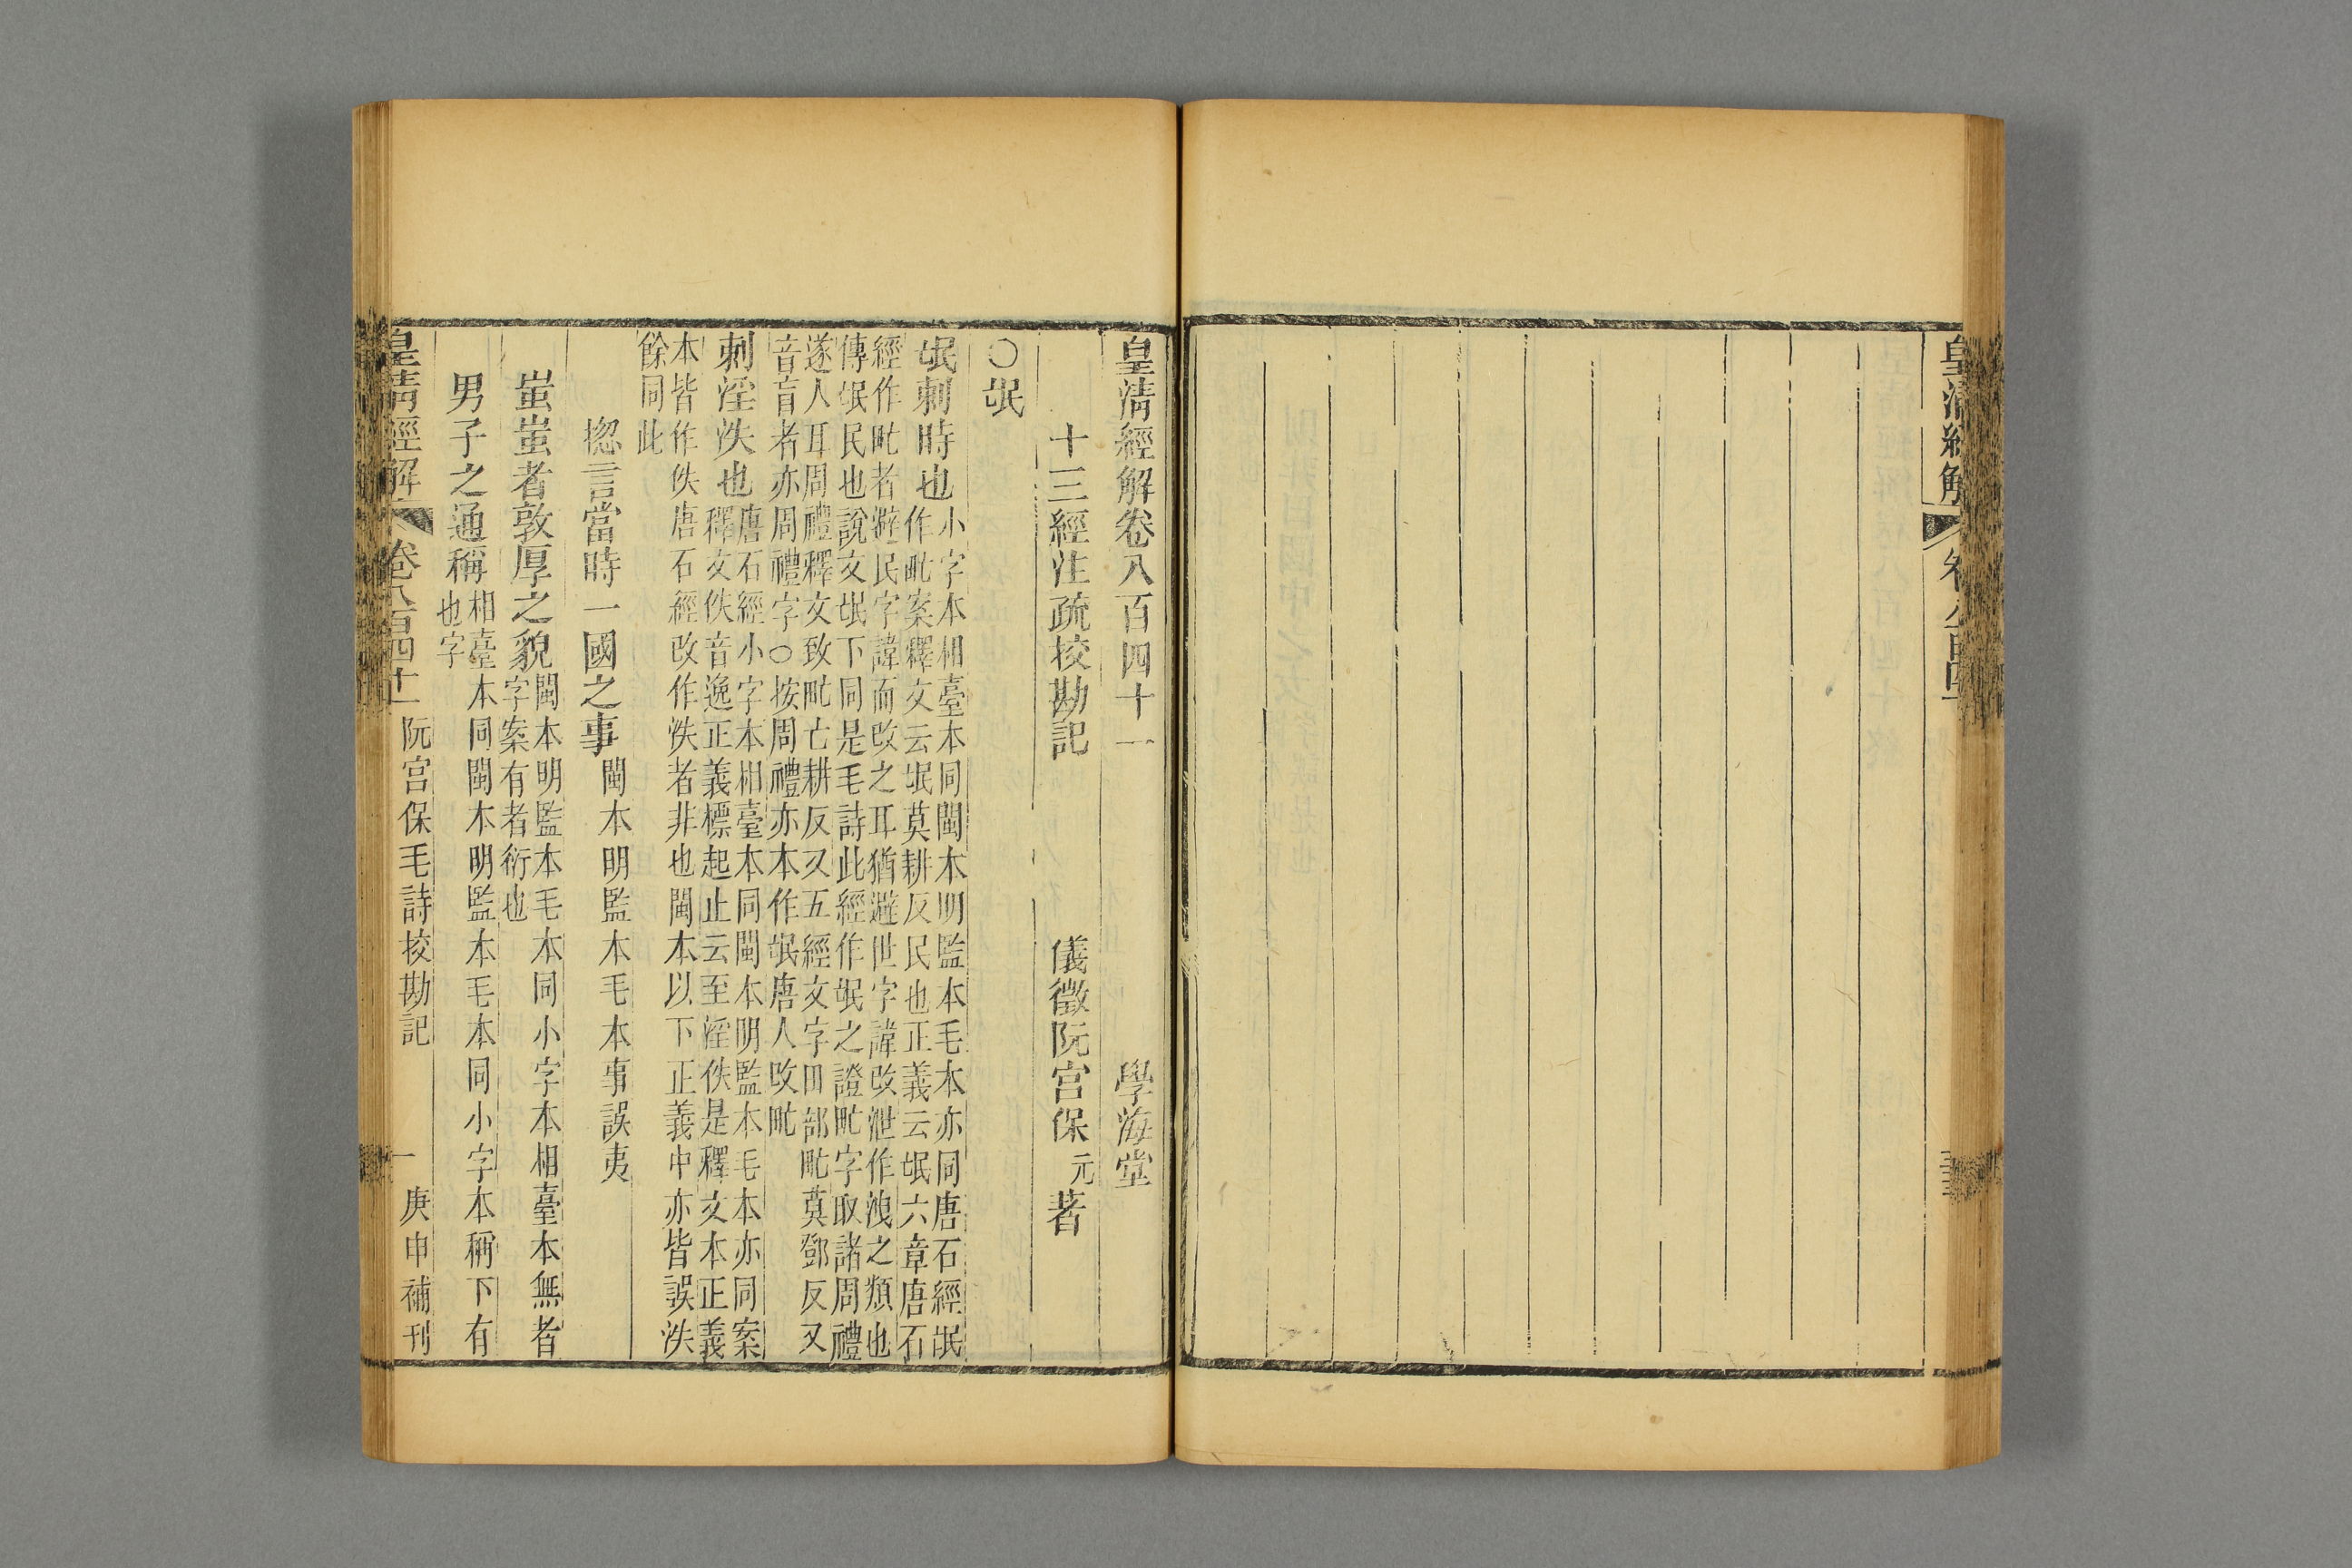 皇清經解
皇清經解卷八百四十一 學海堂
十三經注疏挍勘記 儀徵阮宮保元著
○氓
氓刺時也
小字本相臺本同閩本明監本毛本亦同唐石經氓
作甿案釋文云氓莫耕反民也正義云氓六章唐石
經作甿者避民字諱而改之耳猶避世字諱改泄作洩之類也
傳氓民也說文氓下同是毛詩此經作氓之證甿字取諸周禮
遂人耳周禮釋文致甿亡耕反又五經文字田部甿莫鄧反又
音盲者亦周禮字○按周禮亦本作氓唐人改甿
刺淫泆也
唐石經小字本相臺本同閩本明監本毛本亦同案
釋文佚音逸正義標起止云至淫佚是釋文本正義
本皆作佚唐石經改作泆者非也閩本以下正義中亦皆誤泆
餘同此
揔言當時一國之事 閩本明監本毛本事誤夷
蚩蚩者敦厚之貌
閩本明監本毛本同小字本相臺本無者
字案有者衍也
男子之通稱
相臺本同閩本明監本毛本同小字本稱下有
也字
皇清經解 卷八百四十一 阮宮保毛詩挍勘記 一 庚申補刊